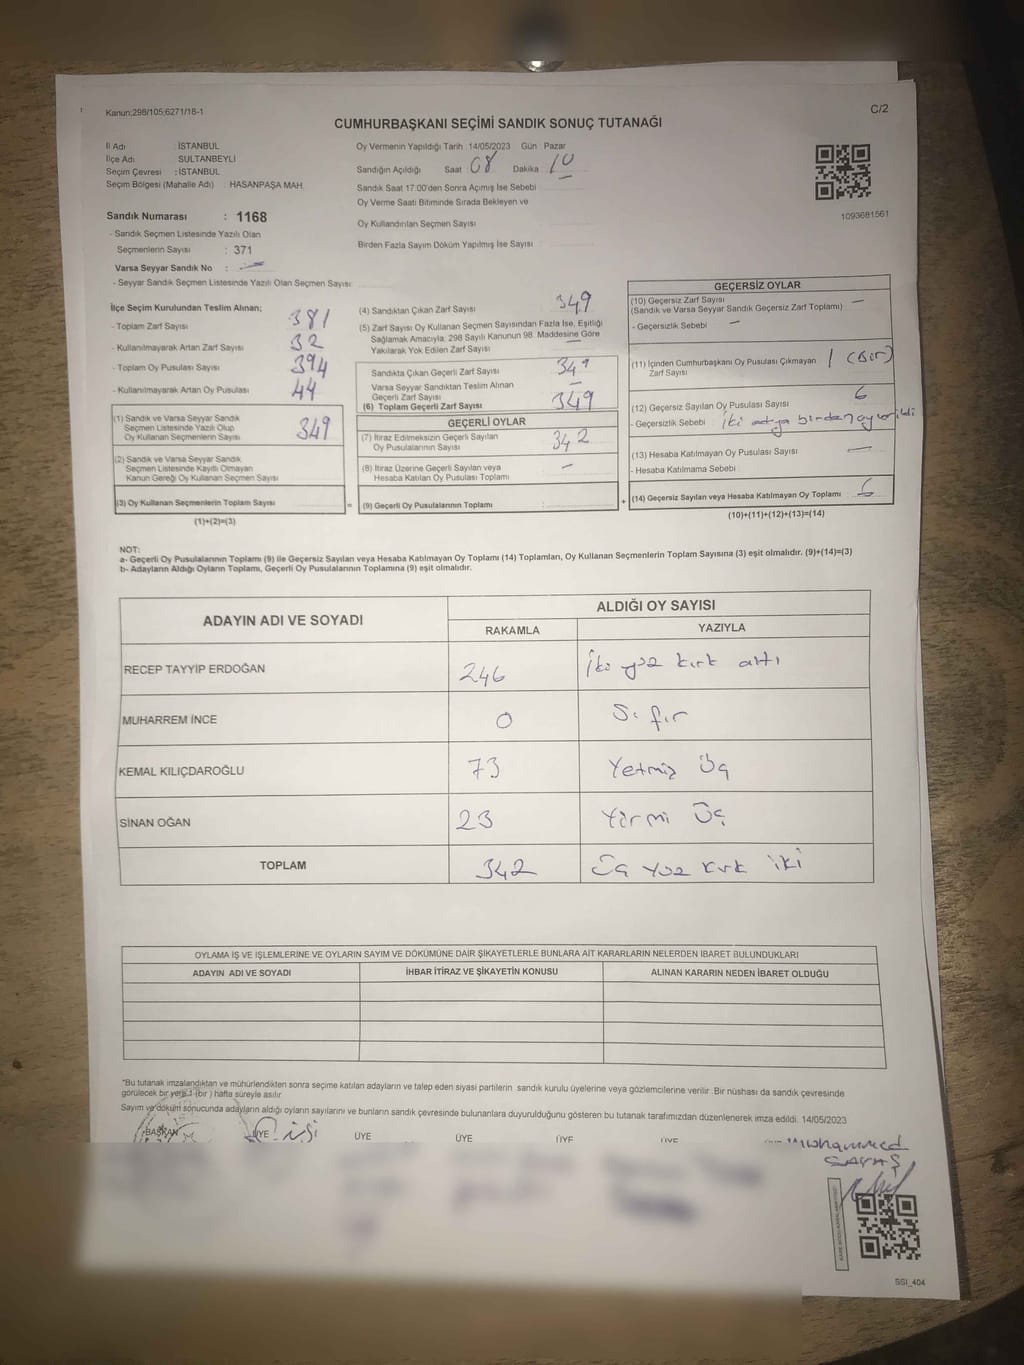 Kanun;298/105;6271/18-1
C/2
CUMHURBAŞKANI SEÇİMİ SANDIK SONUÇ TUTANAĞI
İl Adı : İSTANBUL
İlçe Adı : SULTANBEYLİ
Seçim Çevresi : İSTANBUL
Seçim Bölgesi (Mahalle Adı) : HASANPAŞA MAH.
Sandık Numarası : 1168
- Sandık Seçmen Listesinde Yazılı Olan
Seçmenlerin Sayısı : 371
Varsa Seyyar Sandık No : —
- Seyyar Sandık Seçmen Listesinde Yazılı Olan Seçmen Sayısı
Oy Vermenin Yapıldığı Tarih :14/05/2023 Gün : Pazar
Sandığın Açıldığı Saat : 08 Dakika : 10
Sandık Saat 17:00'den Sonra Açımış İse Sebebi
Oy Verme Saati Bitiminde Sırada Bekleyen ve
Oy Kullandırılan Seçmen Sayısı
Birden Fazla Sayım Döküm Yapılmış İse Sayısı
1093681561
İlçe Seçim Kurulundan Teslim Alınan;
- Toplam Zarf Sayısı 381
- Kullanılmayarak Artan Zarf Sayısı 32
- Toplam Oy Pusulası Sayısı 394
- Kullanılmayarak Artan Oy Pusulası 44
(1) Sandık ve Varsa Seyyar Sandık
Seçmen Listesinde Yazılı Olup
Oy Kullanan Seçmenlerin Sayısı 349
(2) Sandık ve Varsa Seyyar Sandık
Seçmen Listesinde Kayıtlı Olmayan
Kanun Gereği Oy Kullanan Seçmen Sayısı
(3) Oy Kullanan Seçmenlerin Toplam Sayısı
(1)+(2)=(3)
(4) Sandıktan Çıkan Zarf Sayısı 349
(5) Zarf Sayısı Oy Kullanan Seçmen Sayısından Fazla İse, Eşitliği
Sağlamak Amacıyla; 298 Sayılı Kanunun 98. Maddesine Göre
Yakılarak Yok Edilen Zarf Sayısı —
Sandıkta Çıkan Geçerli Zarf Sayısı 349
Varsa Seyyar Sandıktan Teslim Alınan
Geçerli Zarf Sayısı —
(6) Toplam Geçerli Zarf Sayısı 349
GEÇERLİ OYLAR
(7) İtiraz Edilmeksizin Geçerli Sayılan
Oy Pusulasının Sayısı 342
(8) İtiraz Üzerine Geçerli Sayılan veya
Hesaba Katılan Oy Pusulası Toplamı —
= (9) Geçerli Oy Pusulalarının Toplamı
GEÇERSİZ OYLAR
(10) Geçersiz Zarf Sayısı —
(Sandık ve Varsa Seyyar Sandık Geçersiz Zarf Toplamı)
- Geçersizlik Sebebi —
(11) İçinden Cumhurbaşkanı Oy Pusulası Çıkmayan 1 (Bir)
Zarf Sayısı
(12) Geçersiz Sayılan Oy Pusulası Sayısı 6
- Geçersizlik Sebebi iki adaya birden oy verildi
(13) Hesaba Katılmayan Oy Pusulası Sayısı —
- Hesaba Katılmama Sebebi
+ (14) Geçersiz Sayılan veya Hesaba Katılmayan Oy Toplamı 6
(10)+(11)+(12)+(13)=(14)
NOT:
a- Geçerli Oy Pusulalarının Toplamı (9) ile Geçersiz Sayılan veya Hesaba Katılmayan Oy Toplamı (14) Toplamları, Oy Kullanan Seçmenlerin Toplam Sayısına (3) eşit olmalıdır. (9)+(14)=(3)
b- Adayların Aldığı Oyların Toplamı, Geçerli Oy Pusulalarının Toplamına (9) eşit olmalıdır.
ADAYIN ADI VE SOYADI ALDIĞI OY SAYISI
RAKAMLA YAZIYLA
RECEP TAYYİP ERDOĞAN 246 İki yüz kırk altı
MUHARREM İNCE 0 Sıfır
KEMAL KILIÇDAROĞLU 73 Yetmiş Üç
SİNAN OĞAN 23 Yirmi Üç
TOPLAM 342 Üç yüz kırk iki
OYLAMA İŞ VE İŞLEMLERİNE VE OYLARIN SAYIM VE DÖKÜMÜNE DAİR ŞİKAYETLERLE BUNLARA AİT KARARLARIN NELERDEN İBARET BULUNDUKLARI
ADAYIN ADI VE SOYADI İHBAR İTİRAZ VE ŞİKAYETİN KONUSU ALINAN KARARIN NEDEN İBARET OLDUĞU
"Bu tutanak imzalandıktan ve mühürlendikten sonra seçime katılan adayların ve talep eden siyasi partilerin sandık kurulu üyelerine veya gözlemcilerine verilir. Bir nüshası da sandık çevresinde
görülecek bir yere 1 (bir) hafta süreyle asılır
Sayım ve döküm sonucunda adayların aldığı oyların sayılarını ve bunların sandık çevresinde bulunanlara duyurulduğunu gösteren bu tutanak tarafımızdan düzenlenerek imza edildi. 14/05/2023
BAŞKAN ÜYE ÜYE ÜYE ÜYE ÜYE
Muhammed
SAVAŞ
SSI_404